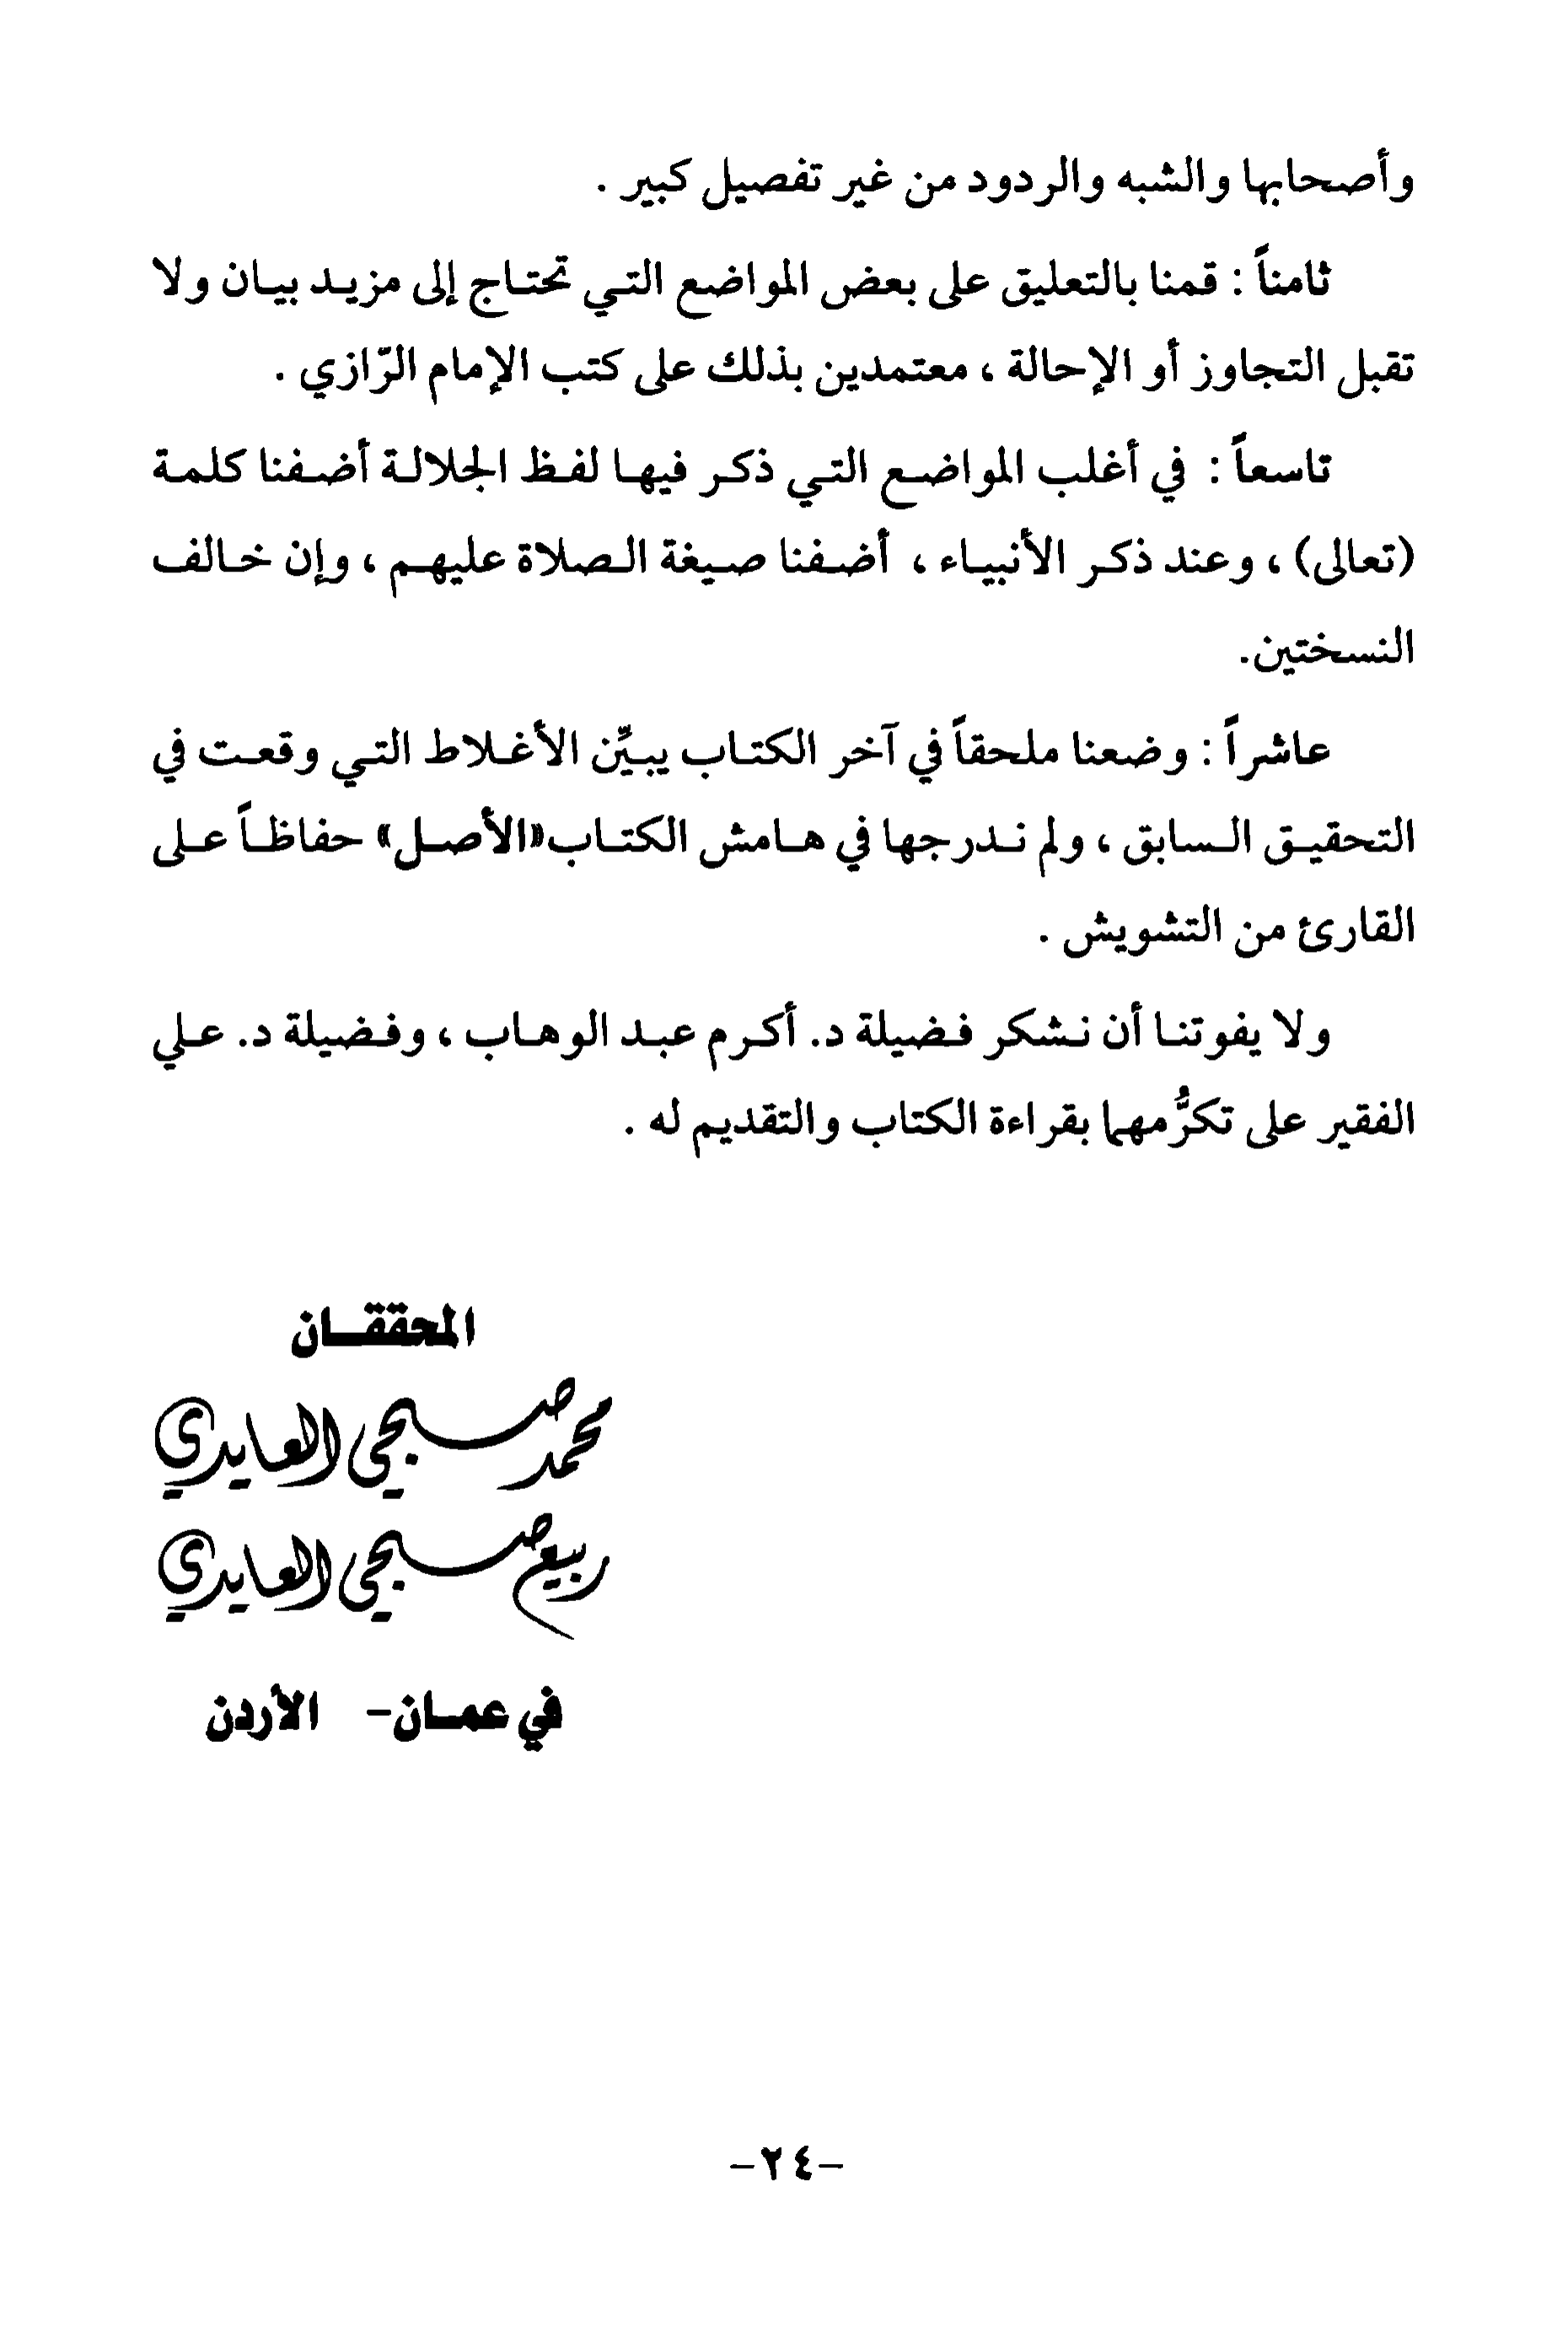 وأصحابها والشبه والردود من غير تفصيل كبير .
ثامناً : قمنا بالتعليق على بعض المواضع التي تحتاج إلى مزيد بيان ولا
تقبل التجاوز أو الإحالة ، معتمدين بذلك على كتب الإمام الرّازي .
تاسعاً : في أغلب المواضع التي ذكر فيها لفظ الجلالة أضفنا كلمة
(تعالى) ، وعند ذكر الأنبياء ، أضفنا صيغة الصلاة عليهم ، وإن خالف
النسختين.
عاشراً : وضعنا ملحقاً في آخر الكتاب يبيِّن الأغلاط التي وقعت في
التحقيق السابق ، ولم ندرجها في هامش الكتاب«الأصل» حفاظاً على
القارئ من التشويش .
ولا يفوتنا أن نشكر فضيلة د. أكرم عبد الوهاب ، وفضيلة د. علي
الفقير على تكرُّمهما بقراءة الكتاب والتقديم له .
المحققان
محمد صبحي العايدي
ربيع صبحي العايدي
في عمان- الأردن
-٢٤-